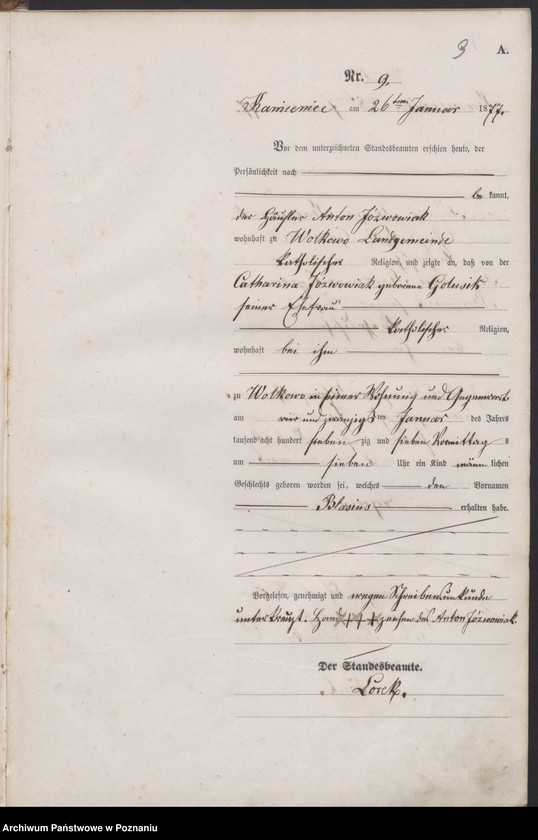 3 A.
Nr. 9.
Kamieniec am 26ten Januar 1877.
Vor dem unterzeichneten Standesbeamten erschien heute, der
Persönlichkeit nach
be kannt,
der Häusler Anton Józwowiak
wohnhaft zu Wolkowo Landgemeinde
katholischer Religion, und zeigte an, daß von der
Catharina Józwowiak geborene Golusik
seiner Ehefrau
katholischer Religion,
wohnhaft bei ihm
zu Wolkowo in seiner Wohnung und Gegenwart
am vier und zwanzigsten Januar des Jahres
tausend acht hundert sieben zig und sieben Vormittags
um sieben Uhr ein Kind männ lichen
Geschlechts geboren worden sei, welches den Vornamen
Blasius erhalten habe.
Vorgelesen, genehmigt und wegen Schreibensunkunde
unterkreuzt. Hand +++ zeichen des Anton Józwowiak.
Der Standesbeamte.
Lorek.
Archiwum Państwowe w Poznaniu